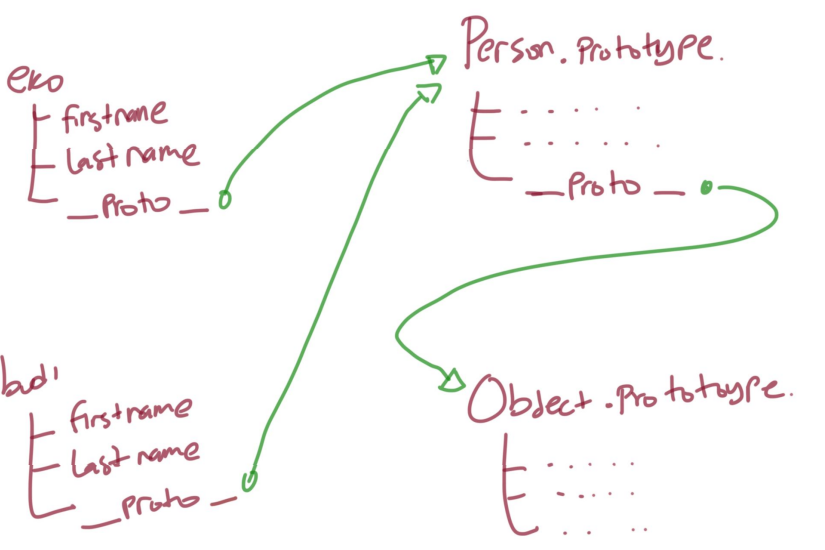 eko
firstname
last name
__proto__
Person.prototype.
. . . . .
. . . . . .
__proto__
budi
firstname
last name
__proto__
Object.prototoype.
. . . . . .
. . . . .
. . . .